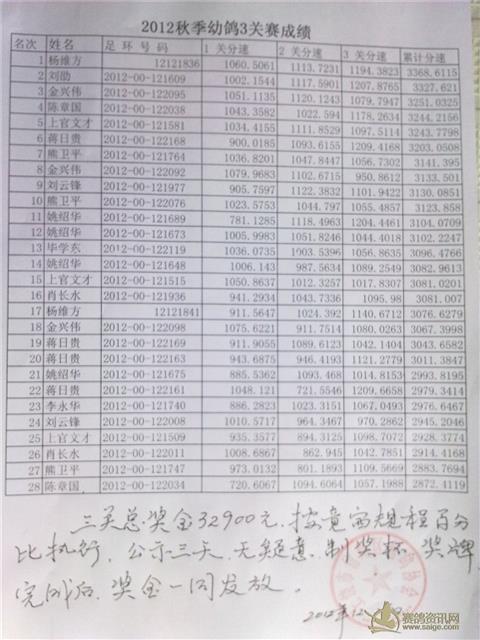 2012秋季幼鸽3关赛成绩
名次 姓名 足环号码 1 关分速 2 关分速 3 关分速 累计分速
1 杨维方 12121836 1060.5061 1113.7231 1194.3823 3368.6115
2 刘劭 2012-00-121609 1002.1544 1117.5901 1207.8765 3327.621
3 金兴伟 2012-00-122095 1051.1135 1120.1243 1079.7947 3251.0325
4 陈章国 2012-00-122038 1043.3582 1022.594 1178.2634 3244.2156
5 上官文才 2012-00-121581 1034.4155 1111.8529 1097.5114 3243.7798
6 蒋日贵 2012-00-122168 900.0185 1093.6155 1209.4168 3203.0508
7 熊卫平 2012-00-121764 1036.8201 1047.8447 1056.7302 3141.395
8 金兴伟 2012-00-122092 1079.9683 1102.6715 950.8612 3133.501
9 刘云锋 2012-00-121977 905.7597 1122.3832 1101.9422 3130.0851
10 熊卫平 2012-00-122076 1023.5753 1044.797 1055.4857 3123.858
11 姚绍华 2012-00-121689 781.1285 1118.4963 1204.4461 3104.0709
12 姚绍华 2012-00-121673 1005.9983 1051.8246 1044.4018 3102.2247
13 毕学东 2012-00-122119 1036.0735 1003.5396 1056.8635 3096.4766
14 姚绍华 2012-00-121648 1006.143 987.5634 1089.2549 3082.9613
15 上官文才 2012-00-121515 1050.8637 1012.3257 1017.8307 3081.0201
16 肖长水 2012-00-121936 941.2934 1043.7336 1095.98 3081.007
17 杨维方 12121841 911.5647 1024.392 1140.6712 3076.6279
18 金兴伟 2012-00-122098 1075.6221 911.7514 1080.0263 3067.3998
19 蒋日贵 2012-00-122169 911.9055 1089.6123 1042.1404 3043.6582
20 蒋日贵 2012-00-122163 943.6875 946.4193 1121.2779 3011.3847
21 姚绍华 2012-00-121675 885.5362 1093.468 1014.8153 2993.8195
22 蒋日贵 2012-00-122161 1048.121 721.5546 1209.6658 2979.3414
23 李永华 2012-00-121740 886.2823 1023.3151 1067.0493 2976.6467
24 刘云锋 2012-00-122008 1010.5717 964.3467 970.2862 2945.2046
25 上官文才 2012-00-121509 935.3577 894.3125 1098.7072 2928.3774
26 肖长水 2012-00-122011 1008.6867 862.945 1042.7851 2914.4168
27 熊卫平 2012-00-121747 973.0132 801.1893 1109.5669 2883.7694
28 陈章国 2012-00-122034 720.6067 1094.6064 1057.1988 2872.4119
三关总奖金32900元，按竞赛规程百分
比执行，公示三天，无疑意，制奖杯，奖牌
完成后，奖金一同发放。
2012年12
赛鸽资讯网
www.saige.com